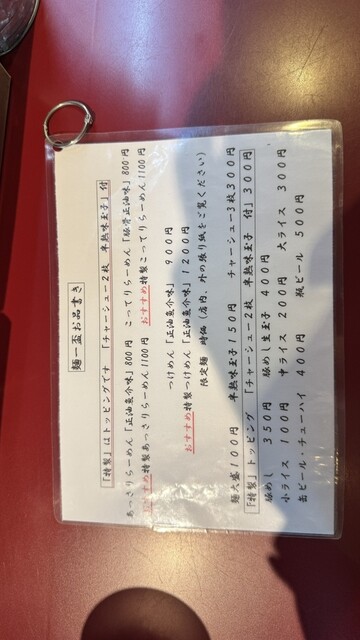 麺一盃お品書き
「特製」はトッピングです 「チャーシュー2枚 半熟味玉子」付
あっさりらーめん「正油魚介味」800円 こってりらーめん「豚骨正油味」800円
おすすめ特製あっさりらーめん1100円 おすすめ特製こってりらーめん1100円
つけめん「正油魚介味」 900円
おすすめ特製つけめん「正油魚介味」1200円
限定麺 時価(店内、外の張り紙をご覧ください)
麺大盛100円 半熟味玉子150円 チャーシュー3枚300円
「特製」トッピング 「チャーシュー2枚 半熟味玉子 付」300円
豚めし 350円 豚めし生玉子 400円
小ライス 100円 中ライス 200円 大ライス 300円
缶ビール・チューハイ 400円 瓶ビール 500円